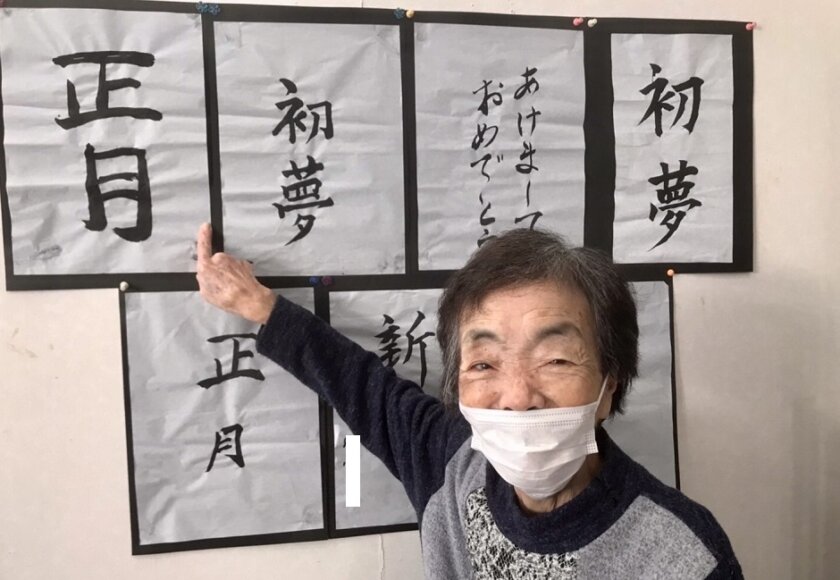 正月
初夢
あけまして
おめでとう
初夢
正月
新